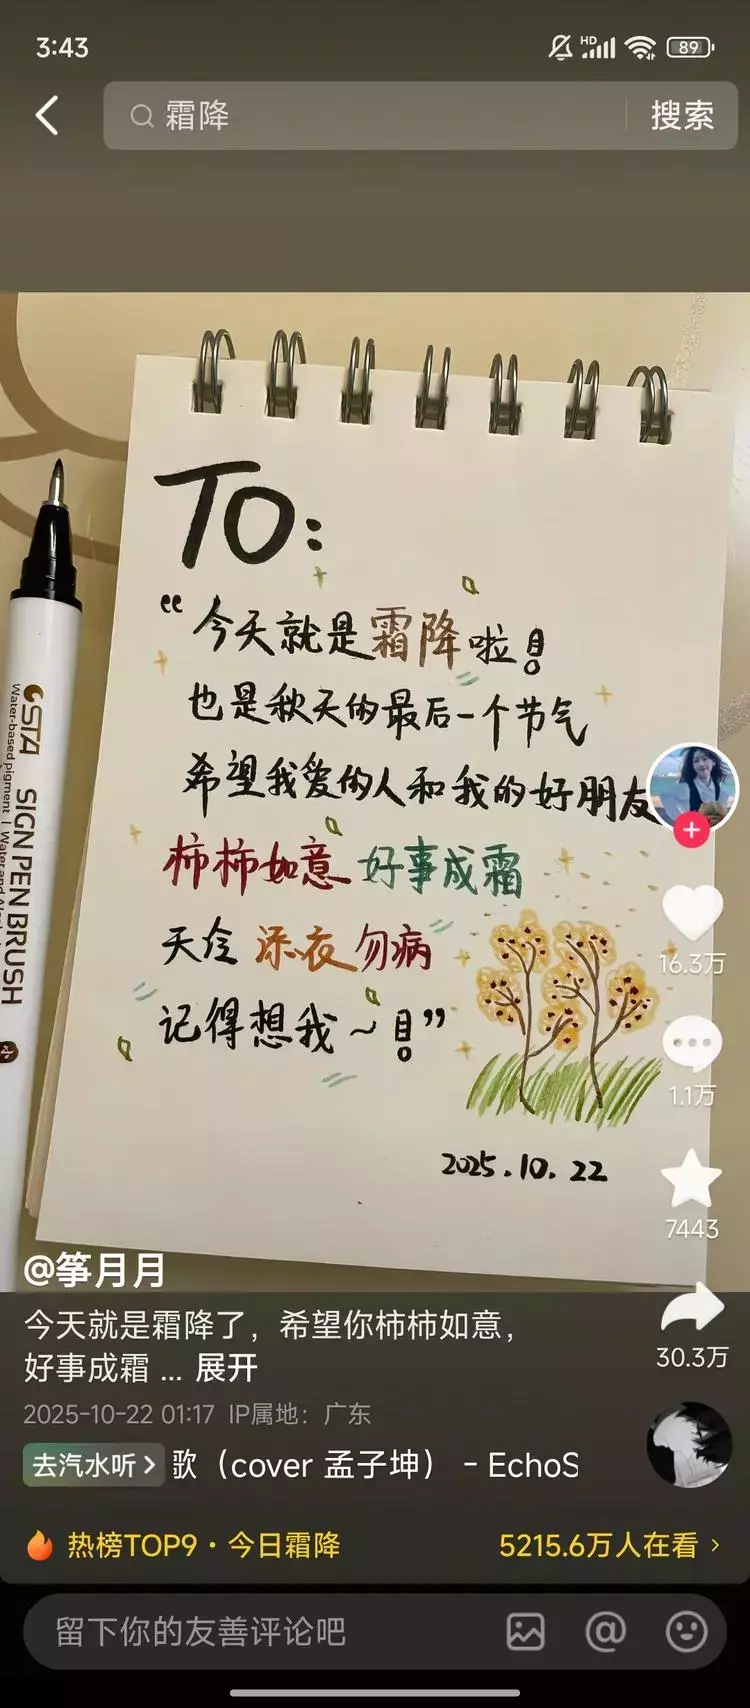 3:43
HD
89
霜降
搜索
TO:
“今天就是霜降啦!
也是秋天的最后一个节气
希望我爱的人和我的好朋友
柿柿如意 好事成霜
天冷 添衣 勿病
记得想我~!”
2025.10.22
STA
Water-based pigment
SIGN PEN BRUSH
16.3万
1.1万
7443
30.3万
@筝月月
今天就是霜降了，希望你柿柿如意，
好事成霜 ... 展开
2025-10-22 01:17 IP属地：广东
去汽水听 歌（cover 孟子坤） - EchoS
热榜TOP9·今日霜降
5215.6万人在看
留下你的友善评论吧